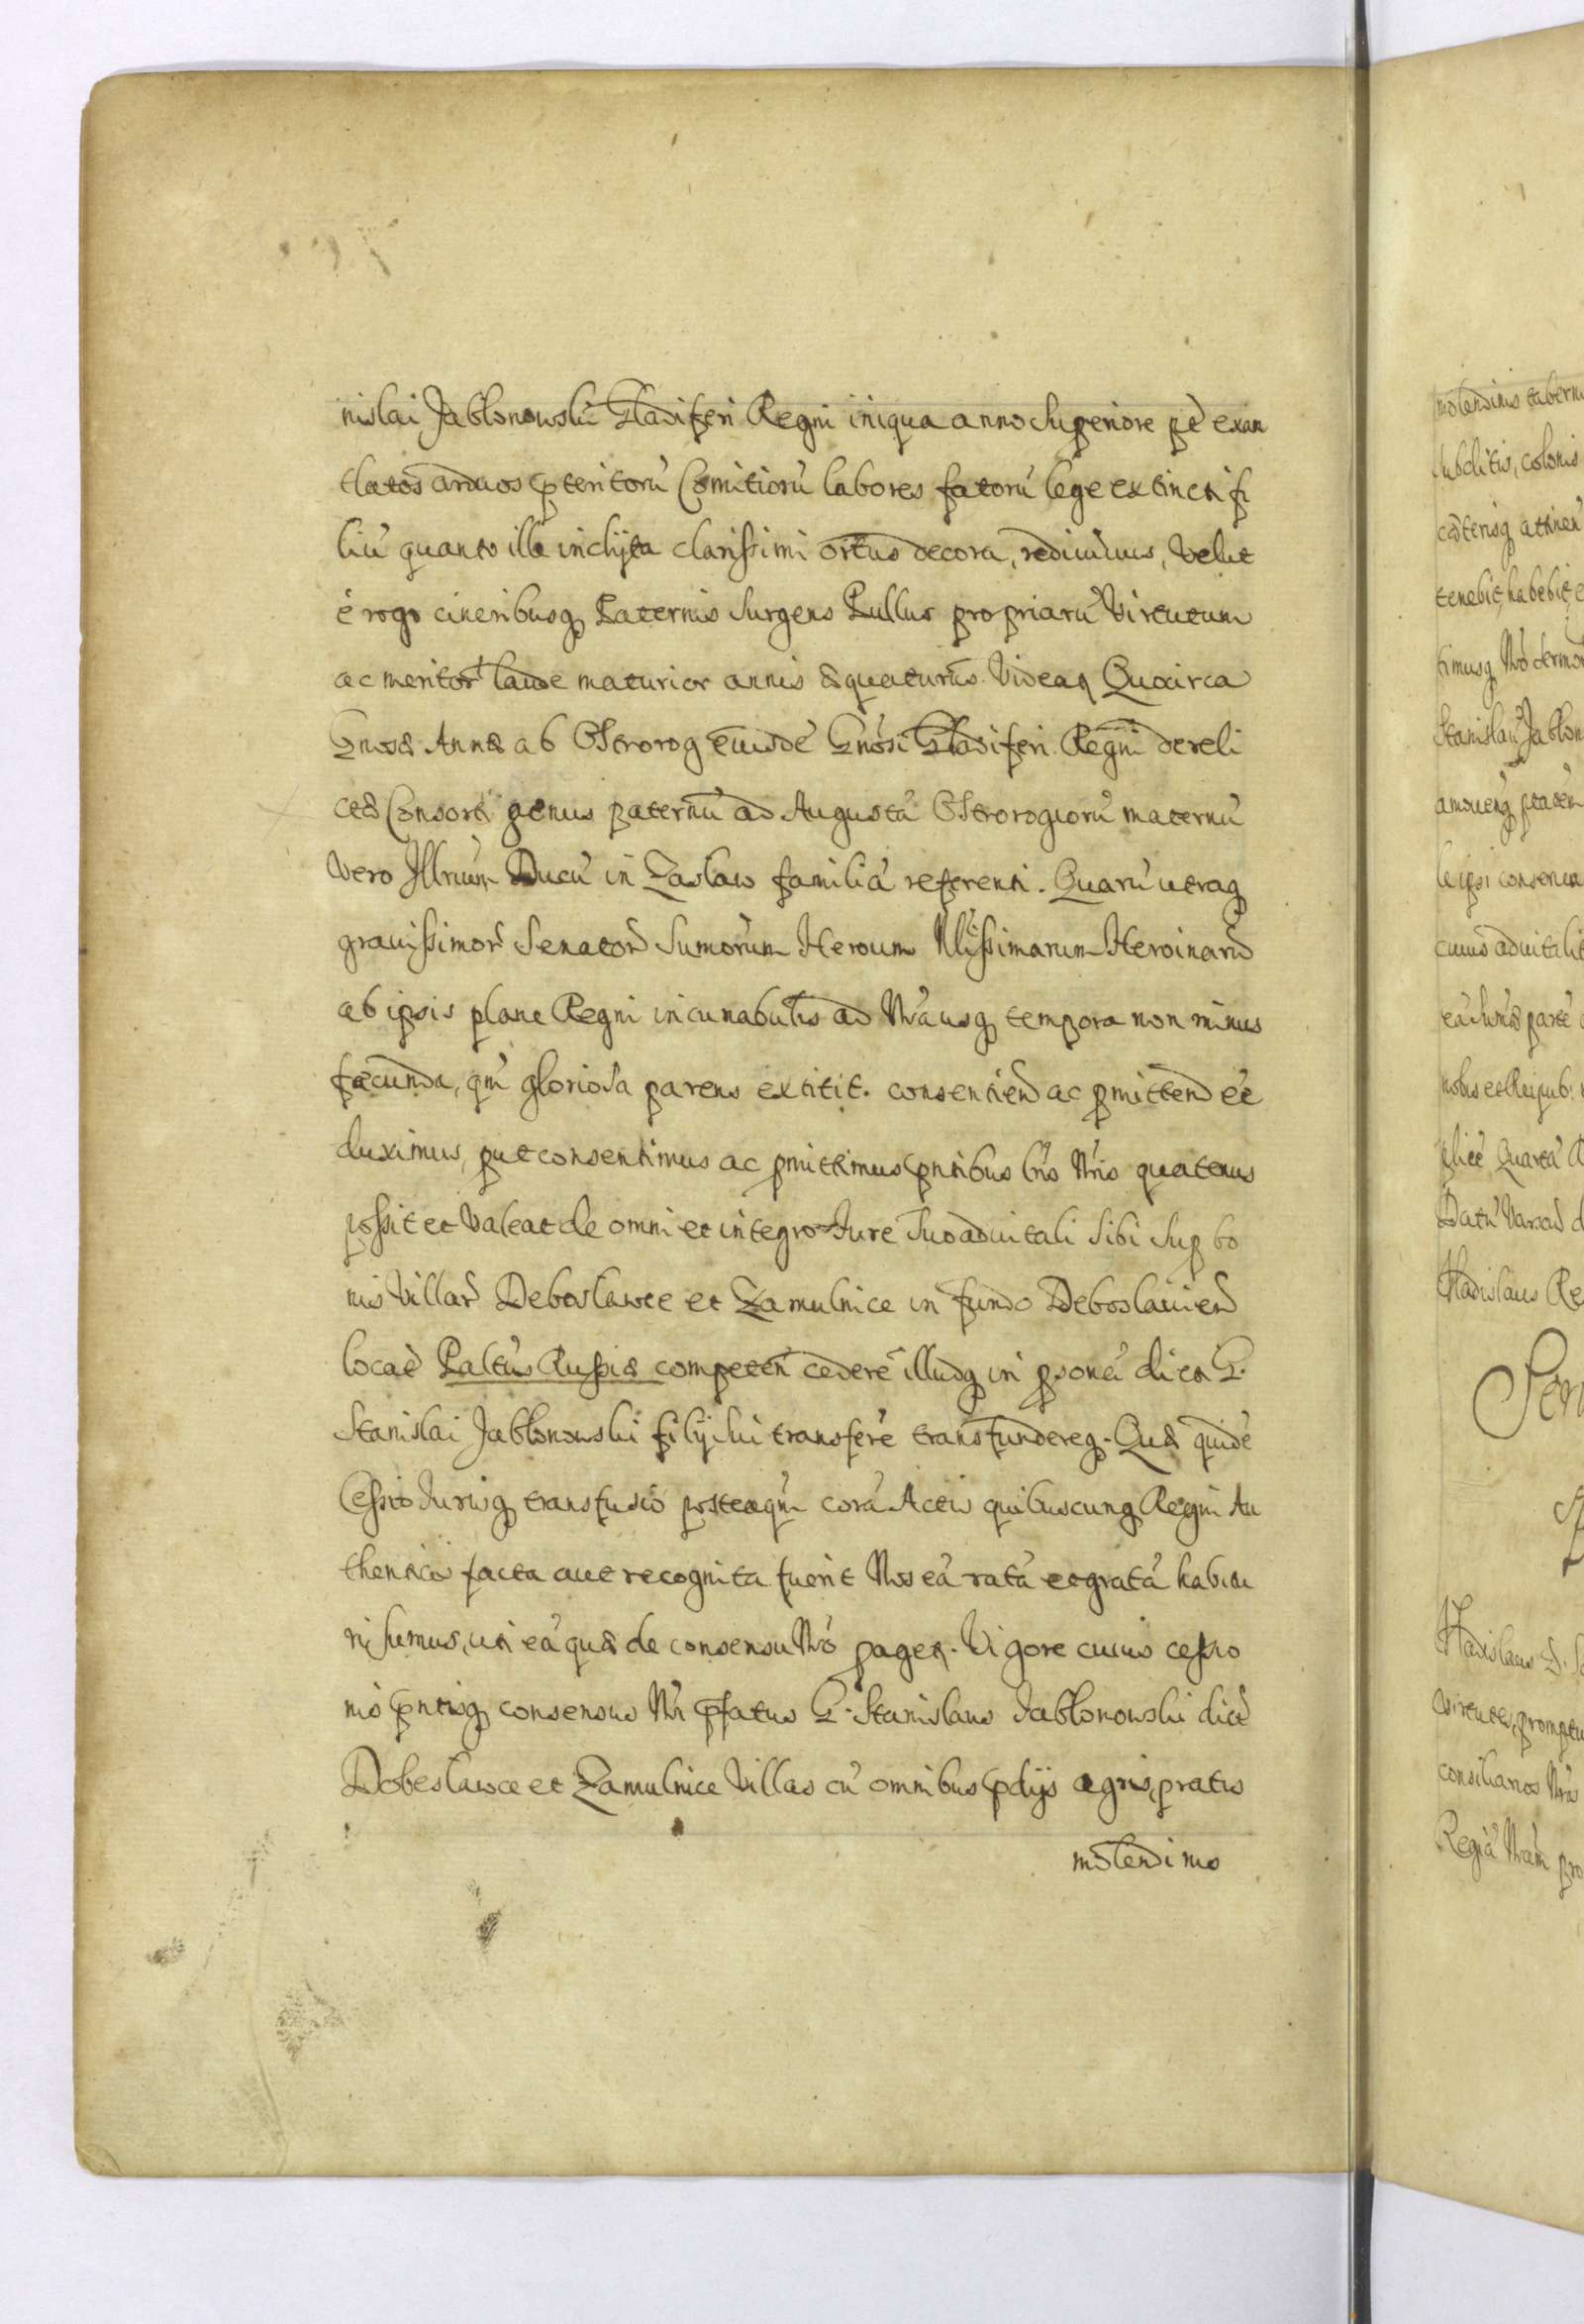 nislai Jablonowski Gladiferi Regni iniqua anno superiore pt exan
tlatos arduos pteritorũ Comitiorũ labores fatorũ lege extincti fi
liũ quanto illa inclyta clarissimi ortus decora, rediuiuus, velut
è rogo cineribusq Paternis surgens Pullus propriarũ Virtutum
ac meritor laude maturior annis æquaturus Videaꝶ Quocirca
Gnosæ Annæ ab Ostrorog eiusdẽ Gnosi Gladiferi Regni dereli
ctæ Consorti genus paternũ ad Augustã Ostrorogiorũ maternũ
vero Illrium Ducũ in Zaslaw familiã referenti. Quarũ utraq
grauissimor Senator Sumorum Heroum Illissimarum Heroinarũ
ab ipsis plane Regni incunabulis ad Nrã usq tempora non minus
fæcunda, qm gloriosa parens extitit. consentiend ac pmittend eẽ
duximus, put consentimus ac pmittimus pntibus lris Nris quatenus
possit et valeat de omni et integro Jure suo aduitali sibi sup bo
nis villar Deboslawce et Zamulnice in fundo Deboslauien
locat Paltũs Russiæ competen cedere illudq in psonã dicti G.
Stanislai Jablonowski filij sui transferẽ transfundereq. Quæ quidẽ
Cessio Jurisq transfusio posteaqm corã Actis quibuscunq Regni Au
thenticis facta aut recognita fuerit Nos eã ratã et gratã habitu
ri sumus, uti eã quæ de consensu Nro pageꝶ. Vigore cuius cessio
nis pntisq consensus Nri pfatus G. Stanislaus Jablonowski dict
Dobeslawce et Zamulnice Villas cũ omnibus pdijs agris, pratis
molendinis
molendinis taberni
subditis, colonis
cæterisq attinen
tenebit, habebit, e
timusq Nro
Stanislaũ Jablon
amoueriq
cuius aduitalit
nobis et Reipub:
Quartã
Datũ Varsau d
Vladislaus Re
Vladislaus D.
virtutes, promptu
consiliarios Nros
Regiã Nram pro